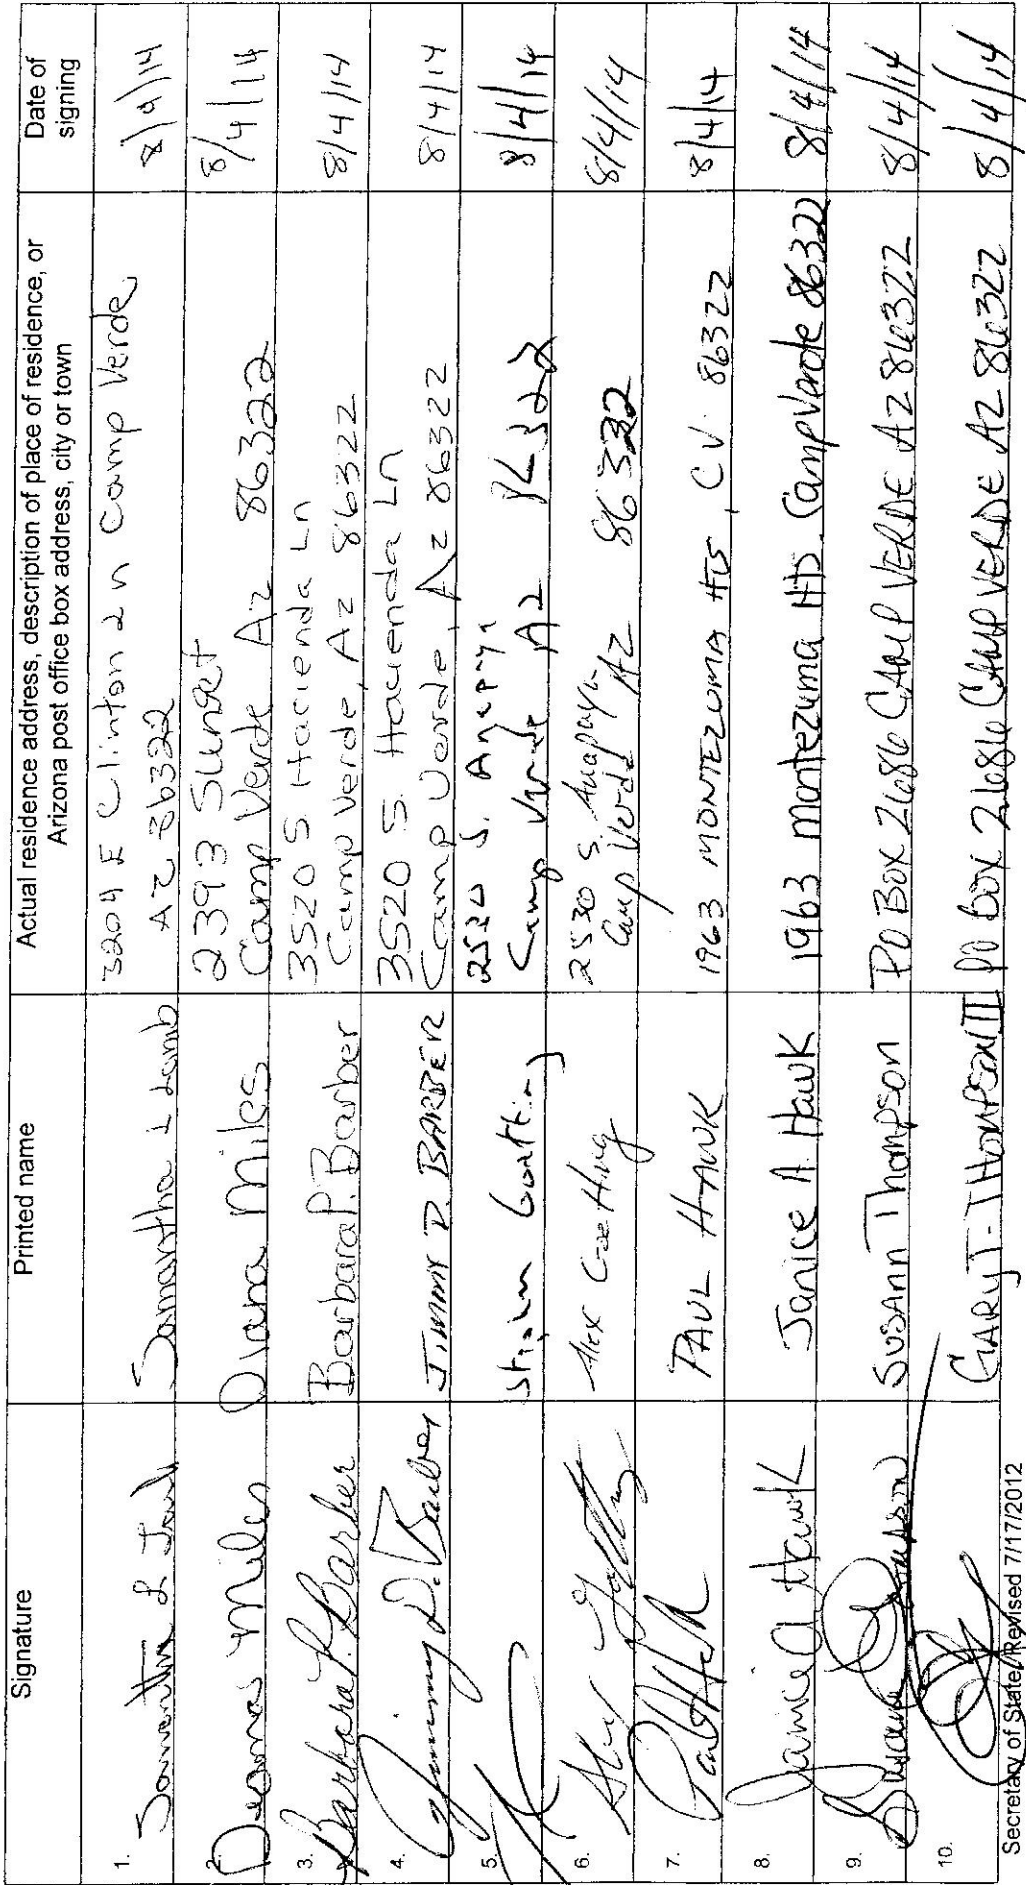 Signature
Printed name
Actual residence address, description of place of residence, or
Arizona post office box address, city or town
Date of
signing
1. Samantha L Lamb Samantha L Lamb 3204 E Clinton Ln Camp Verde
AZ 86322 8/4/14
2. Deana Miles Diana Miles 2393 Sunset
Camp Verde Az 86322 8/4/14
3. Barbara P. Barber Barbara P. Barber 3520 S Hacienda Ln
Camp Verde, Az 86322 8/4/14
4. Jimmy D. Barber JIMMY D. BARBER 3520 S. Hacienda Ln
Camp Verde, Az 86322 8/4/14
5. Goetting S.
Camp Verde AZ 8/4/14
6. Alex Goetting Alex Goetting 2530 S.
Camp Verde AZ 86322 8/4/14
7. Paul Hawk PAUL HAWK 1963 MONTEZUMA HTS, CV. 86322 8/4/14
8. Janice A Hawk Janice A. Hawk 1963 Montezuma Hts. Camp Verde 86322 8/4/14
9. Susann Thompson PO BOX 2686 CAMP VERDE AZ 86322 8/4/14
10. GARY T. THOMPSON II PO BOX 2686 CAMP VERDE AZ 86322 8/4/14
Secretary of State/Revised 7/17/2012